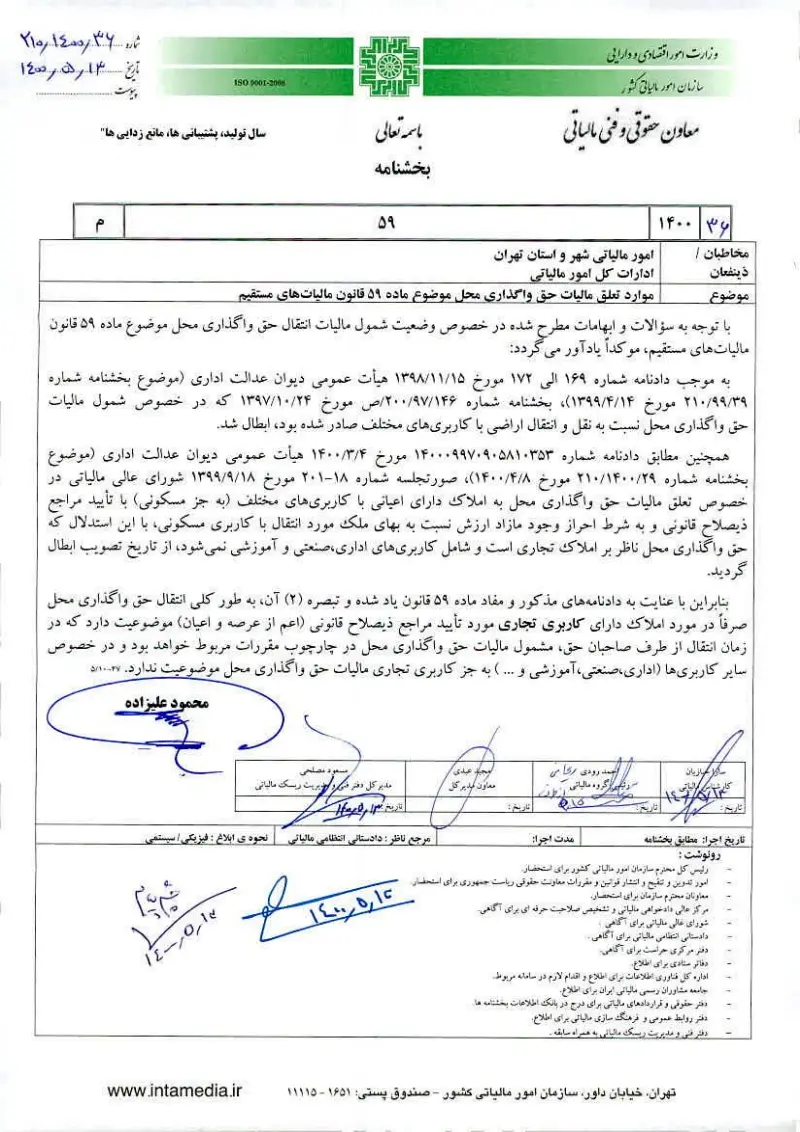 وزارت امور اقتصادی و دارایی
سازمان امور مالیاتی کشور
ISO 9001-2008
شماره ۲۱۰/۱۴۰۰/۳۶
تاریخ ۱۴۰۰/۵/۱۳
پیوست
معاون حقوقی و فنی مالیاتی
باسمه تعالی
سال تولید، پشتیبانی ها، مانع زدایی ها"
بخشنامه
۳۶ ۱۴۰۰ ۵۹ م
مخاطبان / ذینفعان
امور مالیاتی شهر و استان تهران
ادارات کل امور مالیاتی
موضوع موارد تعلق مالیات حق واگذاری محل موضوع ماده ۵۹ قانون مالیات‌های مستقیم
با توجه به سؤالات و ابهامات مطرح شده در خصوص وضعیت شمول مالیات انتقال حق واگذاری محل موضوع ماده ۵۹ قانون
مالیات‌های مستقیم، موکداً یادآور می‌گردد:
به موجب دادنامه شماره ۱۶۹ الی ۱۷۲ مورخ ۱۳۹۸/۱۱/۱۵ هیأت عمومی دیوان عدالت اداری (موضوع بخشنامه شماره
۲۱۰/۹۹/۳۹ مورخ ۱۳۹۹/۴/۱۴)، بخشنامه شماره ۲۰۰/۹۷/۱۴۶/ص مورخ ۱۳۹۷/۱۰/۲۴ که در خصوص شمول مالیات
حق واگذاری محل نسبت به نقل و انتقال اراضی با کاربری‌های مختلف صادر شده بود، ابطال شد.
همچنین مطابق دادنامه شماره ۱۴۰۰۰۹۹۷۰۹۰۵۸۱۰۳۵۳ مورخ ۱۴۰۰/۳/۴ هیأت عمومی دیوان عدالت اداری (موضوع
بخشنامه شماره ۲۱۰/۱۴۰۰/۲۹ مورخ ۱۴۰۰/۴/۸)، صورتجلسه شماره ۱۸-۲۰۱ مورخ ۱۳۹۹/۹/۱۸ شورای عالی مالیاتی در
خصوص تعلق مالیات حق واگذاری محل به املاک دارای اعیانی با کاربری‌های مختلف (به جز مسکونی) با تأیید مراجع
ذیصلاح قانونی و به شرط احراز وجود مازاد ارزش نسبت به بهای ملک مورد انتقال با کاربری مسکونی، با این استدلال که
حق واگذاری محل ناظر بر املاک تجاری است و شامل کاربری‌های اداری،صنعتی و آموزشی نمی‌شود، از تاریخ تصویب ابطال
گردید.
بنابراین با عنایت به دادنامه‌های مذکور و مفاد ماده ۵۹ قانون یاد شده و تبصره (۲) آن، به طور کلی انتقال حق واگذاری محل
صرفاً در مورد املاک دارای کاربری تجاری مورد تأیید مراجع ذیصلاح قانونی (اعم از عرصه و اعیان) موضوعیت دارد که در
زمان انتقال از طرف صاحبان حق، مشمول مالیات حق واگذاری محل در چارچوب مقررات مربوط خواهد بود و در خصوص
سایر کاربری‌ها (اداری،صنعتی،آموزشی و ... ) به جز کاربری تجاری مالیات حق واگذاری محل موضوعیت ندارد. ۵/۱۰-۲۷
محمود علیزاده
کارشناس مالیاتی
تاریخ:
احمد رودی
رئیس گروه مالیاتی
تاریخ:
مجید عبدی
معاون مدیرکل
تاریخ:
مسعود مصلحی
مدیر کل دفتر فنی و مدیریت ریسک مالیاتی
تاریخ: ۱۴۰۰/۵/۱۳
تاریخ اجرا: مطابق بخشنامه مدت اجرا: مرجع ناظر : دادستانی انتظامی مالیاتی نحوه ی ابلاغ : فیزیکی/ سیستمی
رونوشت :
- رئیس کل محترم سازمان امور مالیاتی کشور برای استحضار.
- امور تدوین و تنقیح و انتشار قوانین و مقررات معاونت حقوقی ریاست جمهوری برای استحضار.
- معاونان محترم سازمان برای استحضار.
- مرکز عالی دادخواهی مالیاتی و تشخیص صلاحیت حرفه ای برای آگاهی.
- شورای عالی مالیاتی برای آگاهی .
- دادستانی انتظامی مالیاتی برای آگاهی .
- دفتر مرکزی حراست برای آگاهی.
- دفاتر ستادی برای اطلاع.
- اداره کل فناوری اطلاعات برای اطلاع و اقدام لازم در سامانه مربوط.
- جامعه مشاوران رسمی مالیاتی ایران برای اطلاع.
- دفتر حقوقی و قراردادهای مالیاتی برای درج در بانک اطلاعات بخشنامه ها.
- دفتر روابط عمومی و فرهنگ سازی مالیاتی برای اطلاع.
- دفتر فنی و مدیریت ریسک مالیاتی به همراه سابقه .
۱۴۰۰/۵/۱۲
۱۴۰۰/۵/۱۲
تهران، خیابان داور، سازمان امور مالیاتی کشور – صندوق پستی: ۱۶۵۱ - ۱۱۱۱۵
www.intamedia.ir